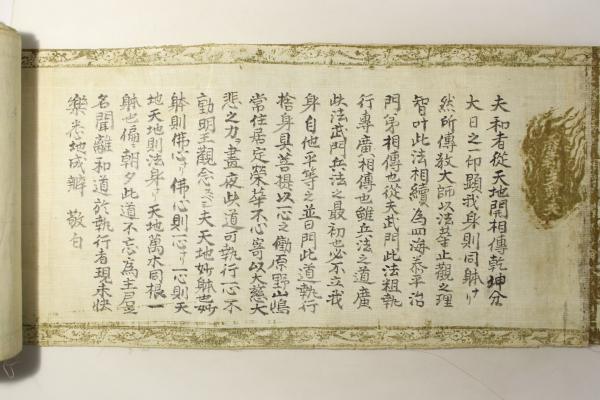 夫和者從天地開相傳乾坤分
大日之一印顕我身則同躰ナリ
然所傳教大師以法華止觀之理
智叶此法相續為四海泰平治
門弟相傳也従夫武門此法粗執
行專廣相傳也雖兵法之道廣
此法武門兵法之最初也必不立我
身自他平等之並日門此道執行
捨身具菩提以一心之働原野山嶋
常住居定榮華不心寄以大慈大
悲之力ヲ盡夜此道可執行一心不
動明王觀念 夫天地 躰也
躰則佛心ナリ佛心則一心ナリ一心則天
地天地則法身ナリ天地萬水同根一
躰也偏ニ朝夕此道不忘為主
名聞離和道於執行者現未快
樂悉地成辦 敬白